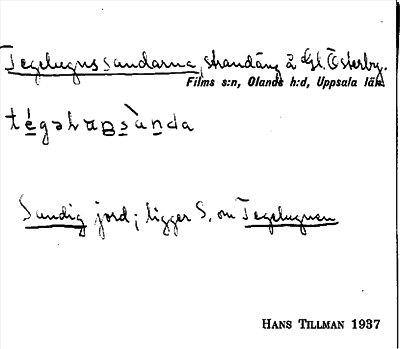 Tegelugnssandarna, strandäng å Gl. Österby.
Films s:n, Olands h:d, Uppsala län.
Sandig jord; ligger S. om Tegelugnen
HANS TILLMAN 1937